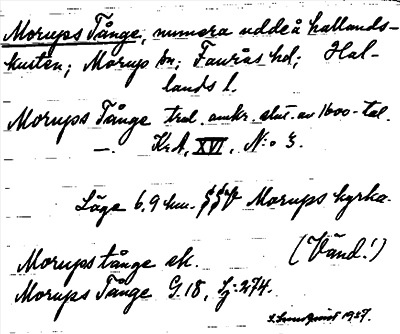 Morups Tånge, numera udde å hallands-
kusten; Morup sn; Faurås hd; Hal-
lands l.
Morups Tånge trol. omkr. slut. av 1600-tal.
—. KrA, XVI, N:o 3.
Läge 6,9 km. SSV Morups kyrka.
(Vänd!)
Morups tånge ek.
Morups Tånge G.18, Sj: 274.
1927.